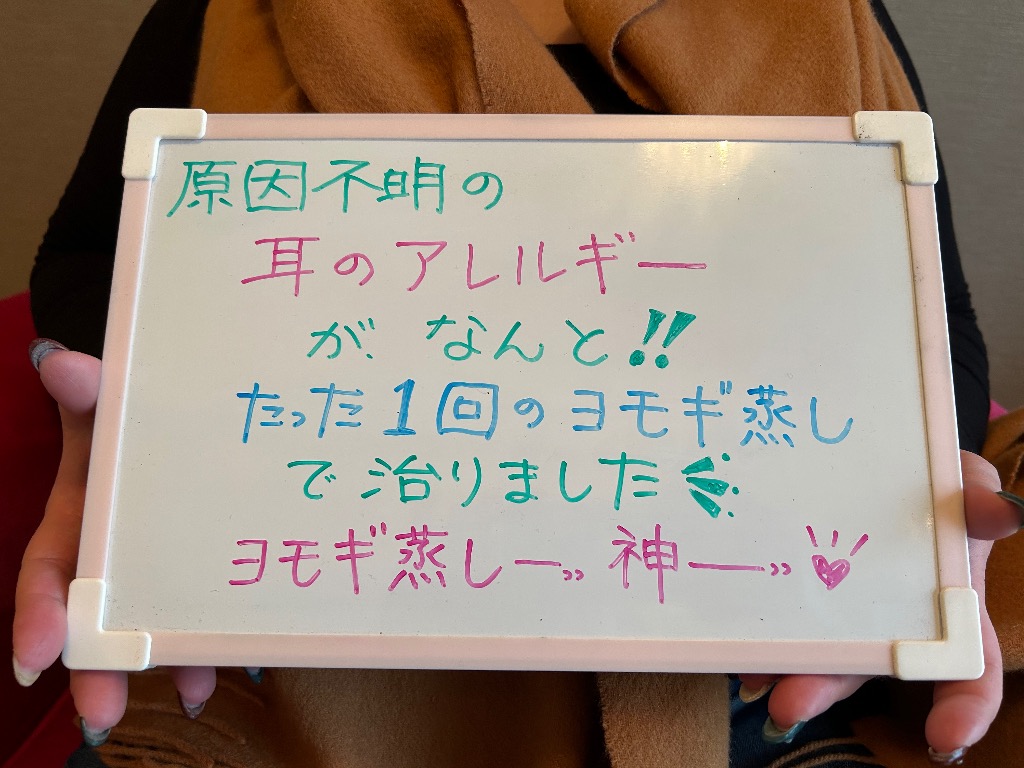 原因不明の
耳のアレルギー
が、なんと!!
たった1回のヨモギ蒸し
で治りました
ヨモギ蒸しー〃 神ー〃